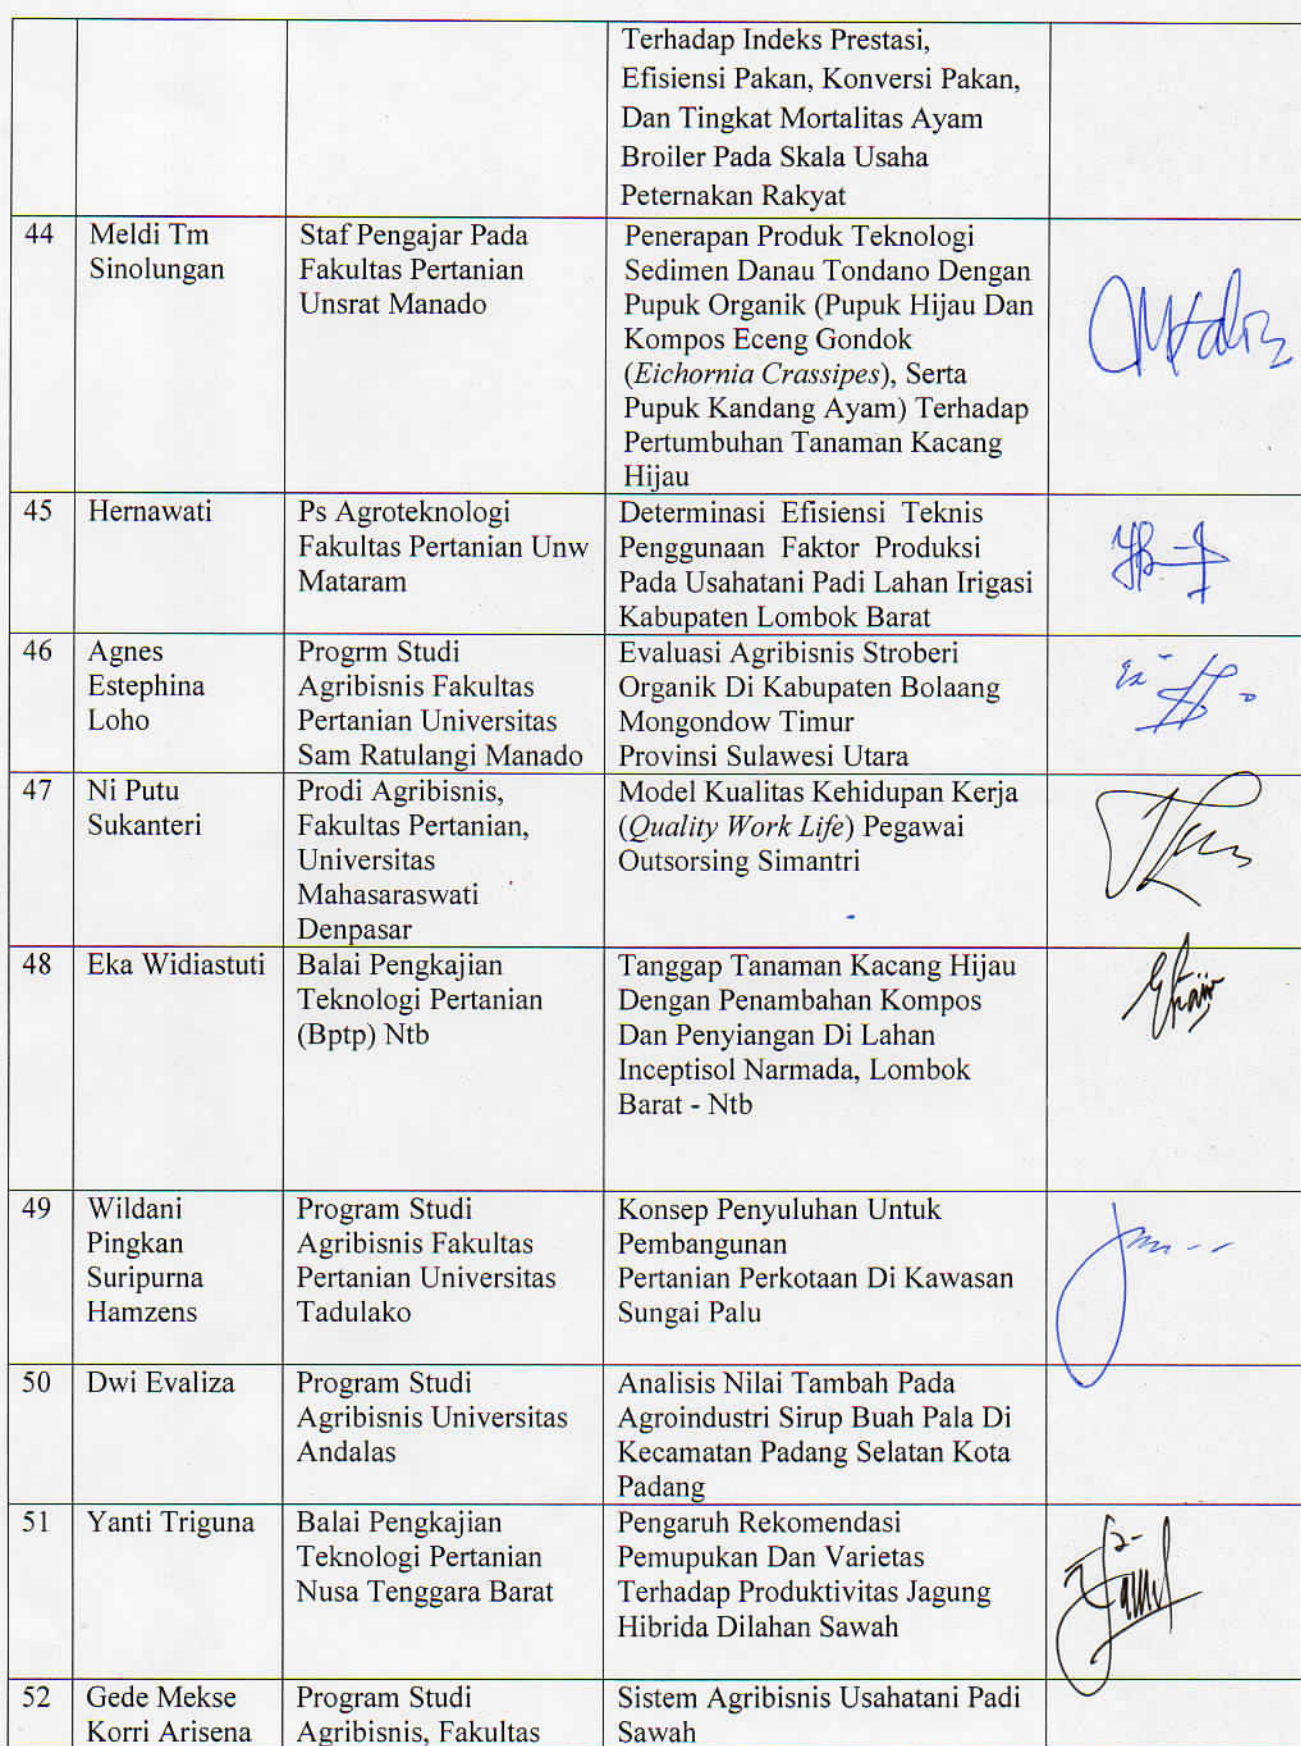 Terhadap Indeks Prestasi,
Efisiensi Pakan, Konversi Pakan,
Dan Tingkat Mortalitas Ayam
Broiler Pada Skala Usaha
Peternakan Rakyat
44
Meldi Tm
Sinolungan
Staf Pengajar Pada
Fakultas Pertanian
Unsrat Manado
Penerapan Produk Teknologi
Sedimen Danau Tondano Dengan
Pupuk Organik (Pupuk Hijau Dan
Kompos Eceng Gondok
(Eichornia Crassipes), Serta
Pupuk Kandang Ayam) Terhadap
Pertumbuhan Tanaman Kacang
Hijau
45
Hernawati
Ps Agroteknologi
Fakultas Pertanian Unw
Mataram
Determinasi Efisiensi Teknis
Penggunaan Faktor Produksi
Pada Usahatani Padi Lahan Irigasi
Kabupaten Lombok Barat
46
Agnes
Estephina
Loho
Progrm Studi
Agribisnis Fakultas
Pertanian Universitas
Sam Ratulangi Manado
Evaluasi Agribisnis Stroberi
Organik Di Kabupaten Bolaang
Mongondow Timur
Provinsi Sulawesi Utara
47
Ni Putu
Sukanteri
Prodi Agribisnis,
Fakultas Pertanian,
Universitas
Mahasaraswati
Denpasar
Model Kualitas Kehidupan Kerja
(Quality Work Life) Pegawai
Outsorsing Simantri
48
Eka Widiastuti
Balai Pengkajian
Teknologi Pertanian
(Bptp) Ntb
Tanggap Tanaman Kacang Hijau
Dengan Penambahan Kompos
Dan Penyiangan Di Lahan
Inceptisol Narmada, Lombok
Barat - Ntb
49
Wildani
Pingkan
Suripurna
Hamzens
Program Studi
Agribisnis Fakultas
Pertanian Universitas
Tadulako
Konsep Penyuluhan Untuk
Pembangunan
Pertanian Perkotaan Di Kawasan
Sungai Palu
50
Dwi Evaliza
Program Studi
Agribisnis Universitas
Andalas
Analisis Nilai Tambah Pada
Agroindustri Sirup Buah Pala Di
Kecamatan Padang Selatan Kota
Padang
51
Yanti Triguna
Balai Pengkajian
Teknologi Pertanian
Nusa Tenggara Barat
Pengaruh Rekomendasi
Pemupukan Dan Varietas
Terhadap Produktivitas Jagung
Hibrida Dilahan Sawah
52
Gede Mekse
Korri Arisena
Program Studi
Agribisnis, Fakultas
Sistem Agribisnis Usahatani Padi
Sawah